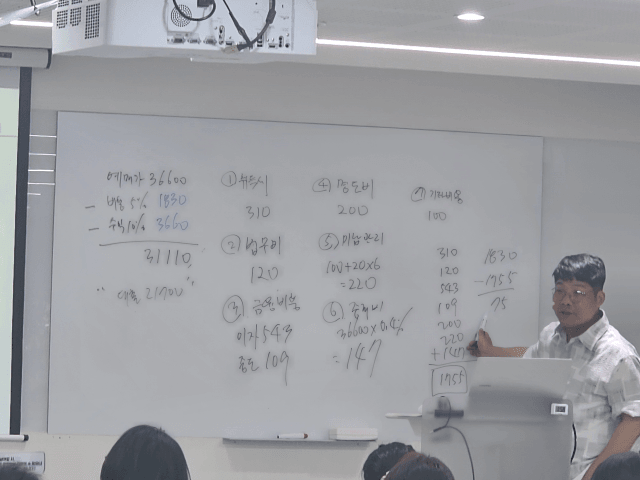 예매가 36600
- 비용 5% 1830
- 수익10% 3660
31110
"대출 21700"
① 취득시
310
② 법무비
120
③ 금융비용
이자 543
중도 109
④ 명도비
200
⑤ 미납관리
100+20×6
=220
⑥ 중개비
36600×0.4%
=147
⑦ 기타비용
100
310
120
543
109
200
220
+147
1755
1830
-1755
75